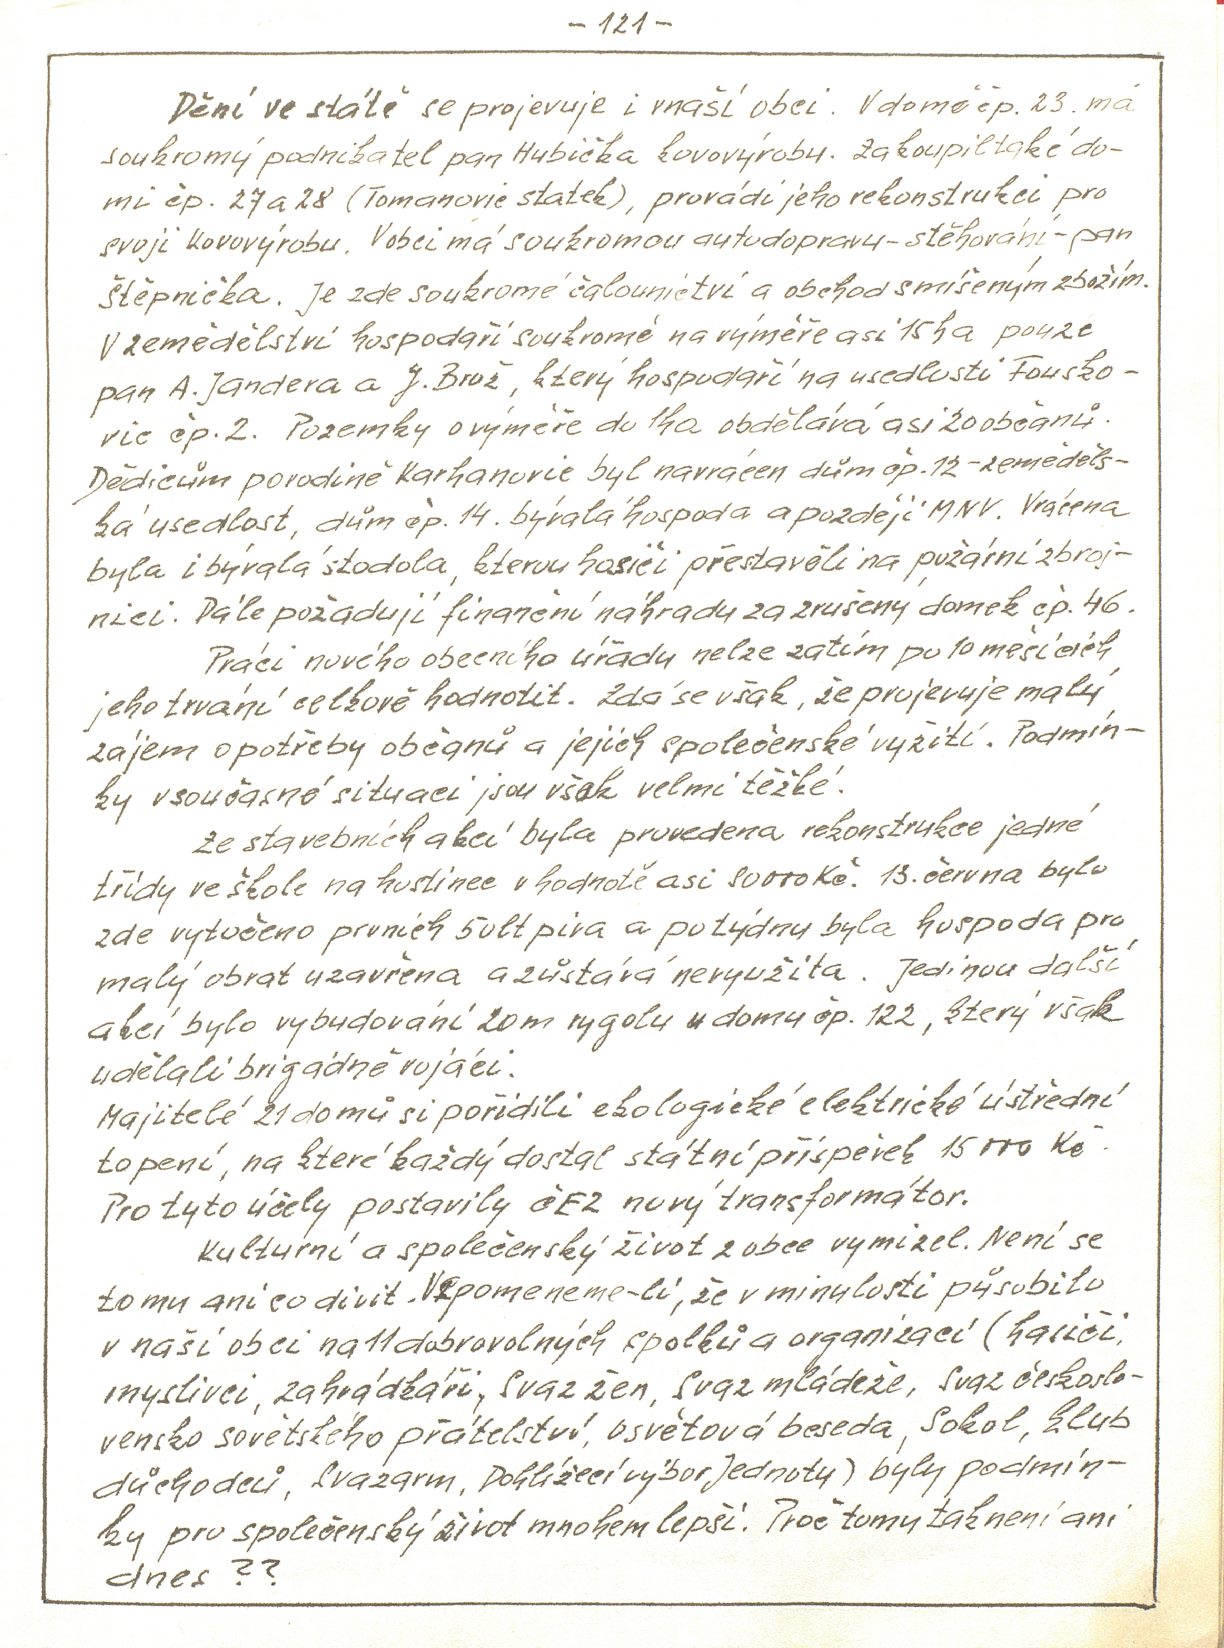 - 121 -
Dění ve státě se projevuje i v naší obci. V domě čp. 23. má
soukromý podnikatel pan Hubička kovovýrobu. Zakoupil také do-
mi čp. 27 a 28 (Tomanovic statek), provádí jeho rekonstrukci pro
svoji kovovýrobu. V obci má soukromou autodopravu - stěhování - pan
Štěpnička. Je zde soukromé čalounictví a obchod smíšeným zbožím.
V zemědělství hospodaří soukromě na výměře asi 15 ha pouze
pan A. Jandera a J. Brož, který hospodaří na usedlosti Fousko-
vic čp. 2. Pozemky o výměře do 1 ha obdělává asi 20 občanů.
Dědicům po rodině Karhanovic byl navrácen dům čp. 12 - zeměděls-
ká usedlost, dům čp. 14. bývalá hospoda a později MNV. Vrácena
byla i bývalá stodola, kterou hasiči přestavěli na požární zbroj-
nici. Dále požadují finanční náhradu za zrušený domek čp. 46.
Práci nového obecního úřadu nelze zatím po 10 měsících
jeho trvání celkově hodnotit. Zdá se však, že projevuje malý
zájem o potřeby občanů a jejich společenské vyžití. Podmín-
ky v současné situaci jsou však velmi těžké.
Ze stavebních akcí byla provedena rekonstrukce jedné
třídy ve škole na hostinec v hodnotě asi 80 000 Kč. 13. června bylo
zde vytočeno prvních 50 lt piva a po týdnu byla hospoda pro
malý obrat uzavřena a zůstává nevyužita. Jedinou další
akcí bylo vybudování 20 m rygolu u domu čp. 122, který však
udělali brigádně vojáci.
Majitelé 21 domů si pořídili ekologické elektrické ústřední
topení, na které každý dostal státní příspěvek 15 000 Kč.
Pro tyto účely postavily ČEZ nový transformátor.
Kulturní a společenský život z obce vymizel. Není se
tomu ani co divit. Vzpomeneme-li, že v minulosti působilo
v naší obci na 11 dobrovolných spolků a organizací (hasiči,
myslivci, zahrádkáři, Svaz žen, Svaz mládeže, Svaz českoslo-
vensko sovětského přátelství, osvětová beseda, Sokol, klub
důchodců, Svazarm, Dohlížecí výbor Jednoty) byly podmín-
ky pro společenský život mnohem lepší. Proč tomu tak není ani
dnes ??